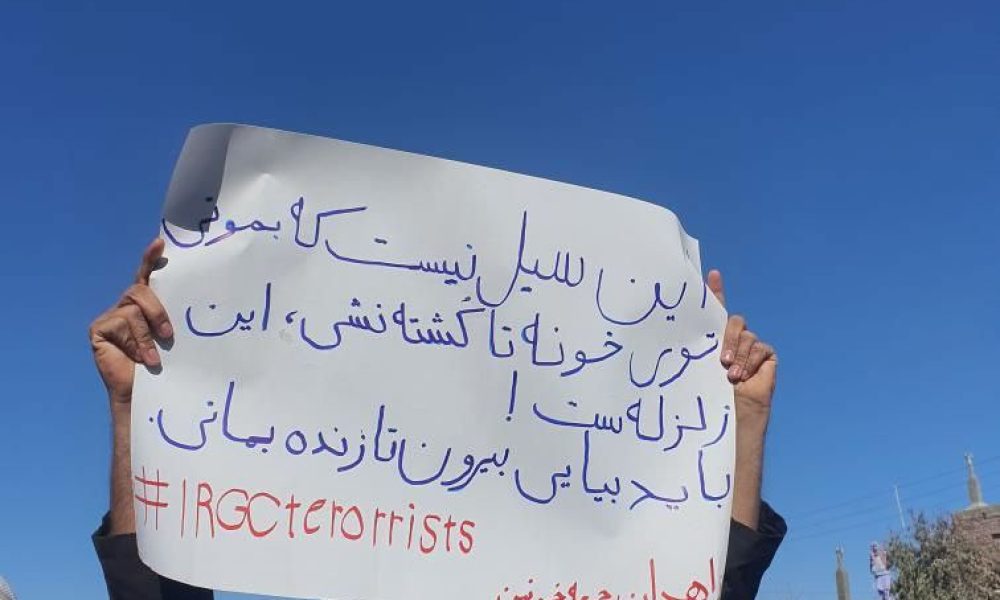 این سیل نیست که بمونی
توی خونه تا کُشته نشی، این
زلزله ست!
باید بیایی بیرون تا زنده بمانی.
#IRGCterorrists